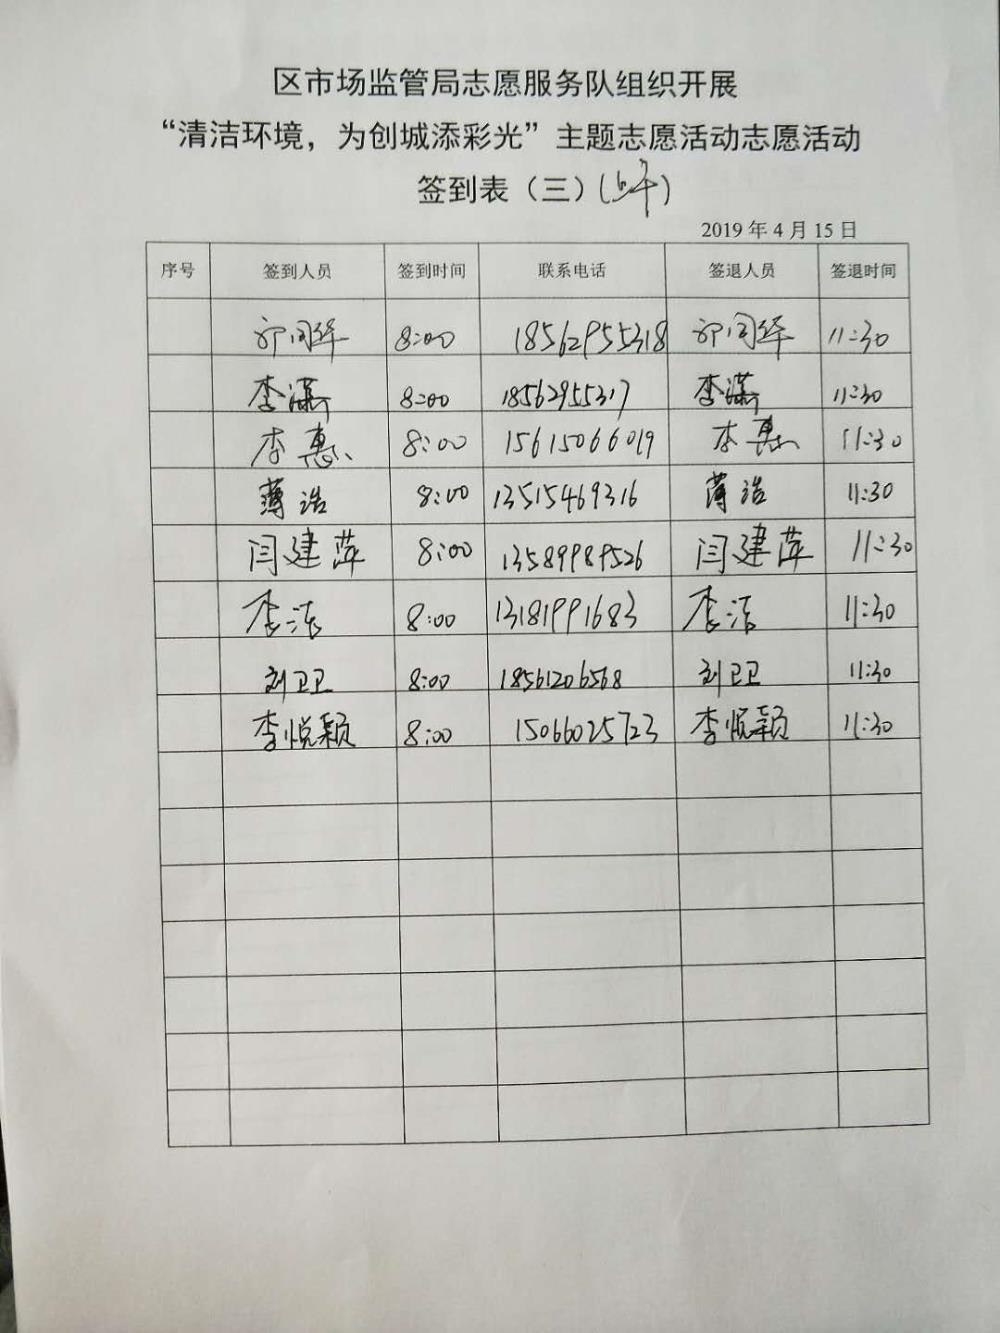 区市场监管局志愿服务队组织开展
“清洁环境，为创城添彩光”主题志愿活动志愿活动
签到表（三）(上午)
2019 年 4 月 15 日
序号 签到人员 签到时间 联系电话 签退人员 签退时间
8:00 18562955318 11:30
李潇 8:00 18562955317 李潇 11:30
李惠 8:00 15615066019 李惠 11:30
薄浩 8:00 13515469316 薄浩 11:30
闫建萍 8:00 13589989526 闫建萍 11:30
李洁 8:00 13181991683 李洁 11:30
刘卫卫 8:00 18561206568 刘卫卫 11:30
李悦颖 8:00 15066025723 李悦颖 11:30